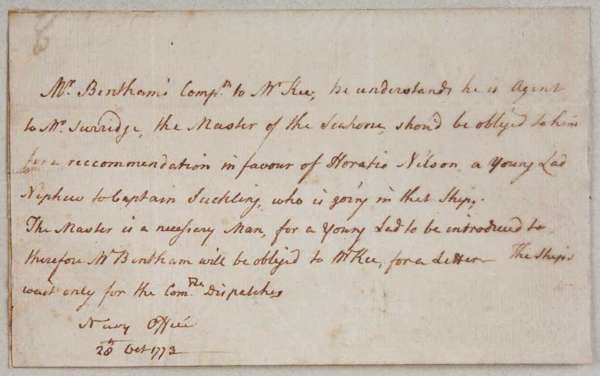 Mr. Bentham's Compts. to Mr Kee, he understands he is Agent
to Mr. Surridge, the Master of the Seahorse, shoud be obliged to him
for a reccommendation in favour of Horatio Nilson a Young Lad
Nephew to Captain Suckling, who is going in that Ship.
The Master is a necessary Man, for a Young Lad to be introduced to
therefore Mr Bentham will be obliged to Mr Kee, for a Letter The Ships
wait only for the Comre. Dispatches
Navy Office
28th Oct 1773